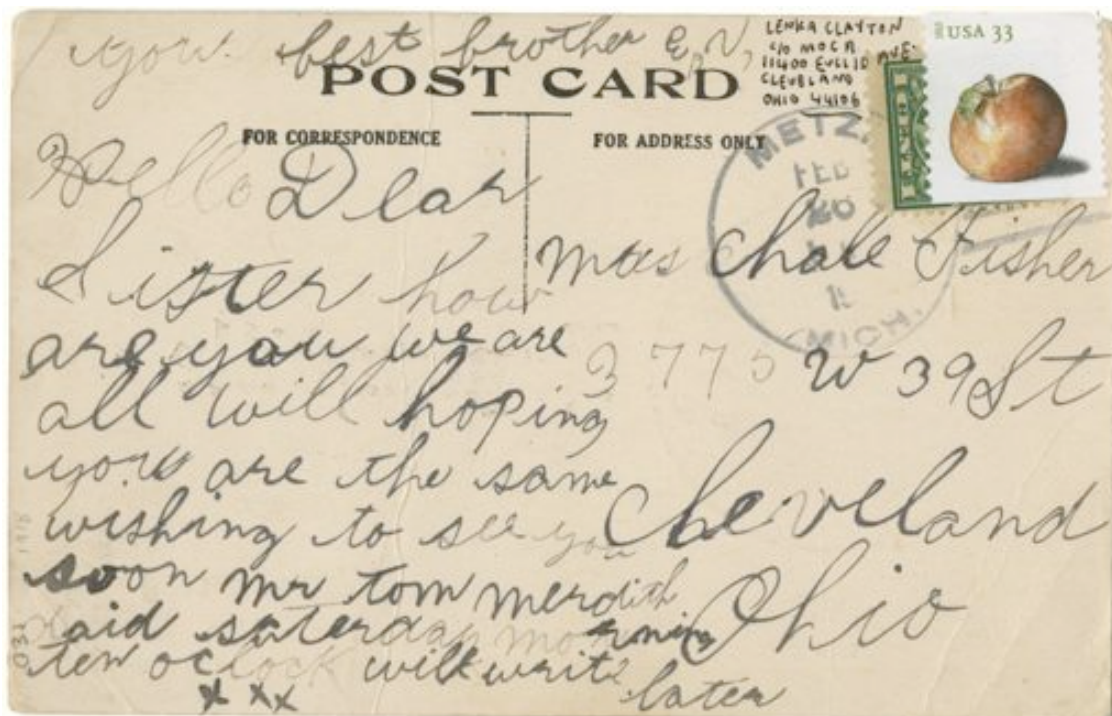 your best brother E, N,
LENKA CLAYTON
C/O MOCA
11400 EUCLID AVE.
CLEVELAND
OHIO 44106
USA 33
POST CARD
FOR CORRESPONDENCE
FOR ADDRESS ONLY
METZ.
FEB
26
MICH.
Hello Dear
Sister how
are you we are
all will hoping
you are the same
wishing to see you
soon mr tom merdith
said saterday morning
ten oclock will write
later
x xx
Mrs Fisher
3775 W 39 St
Cleveland
Ohio
1918